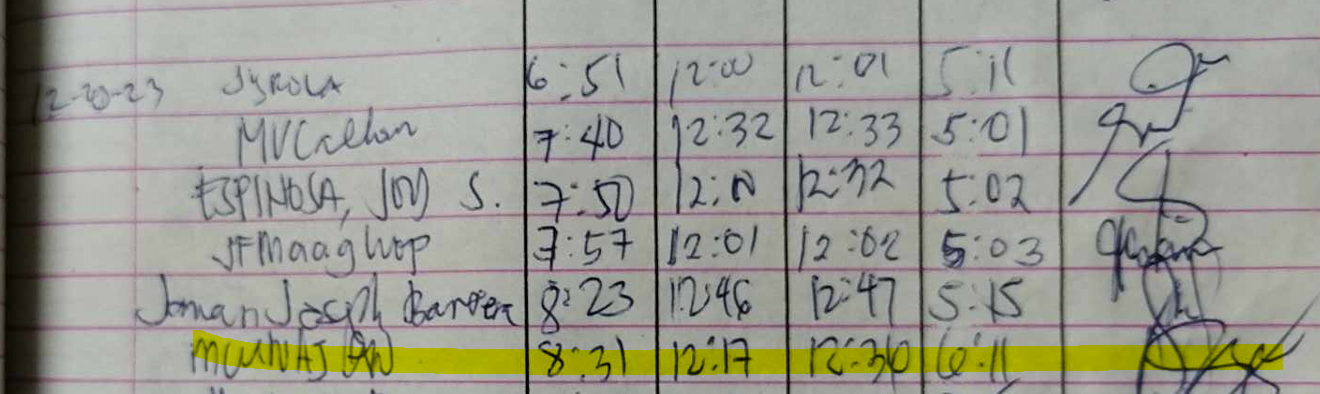 12-20-23 JYROLA 6:51 12:00 12:01 5:11
MVCalhan 7:40 12:32 12:33 5:01
ESPINOSA, JOY S. 7:50 12:32 5:02
JFMaaghop 7:57 12:01 12:02 5:03
Joman Joseph Barrera 8:23 12:46 12:47 5:15
8:31 12:17 12:30 6:11